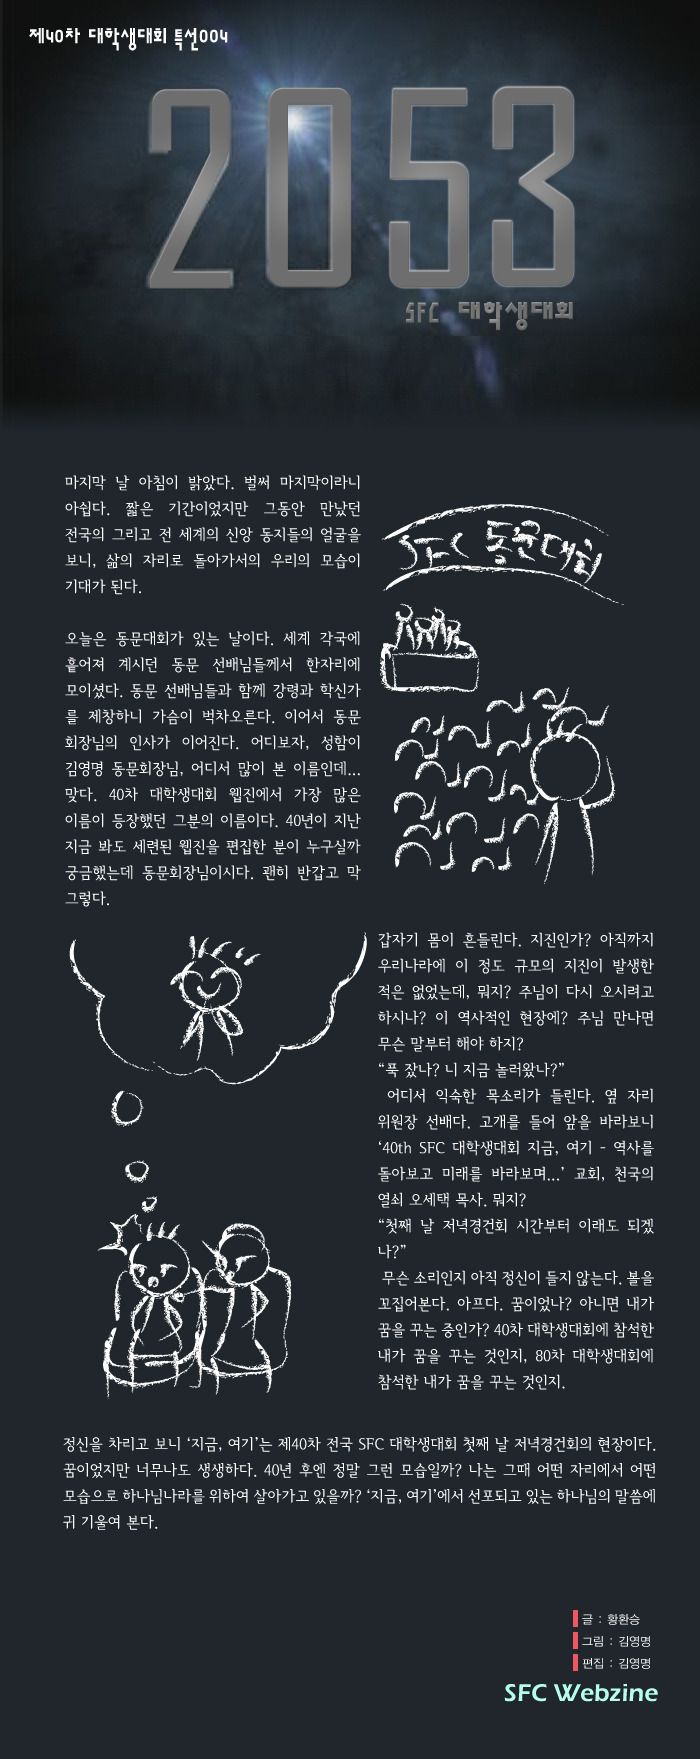 제40차 대학생대회 특선004
2053
SFC 대학생대회
마지막 날 아침이 밝았다. 벌써 마지막이라니
아쉽다. 짧은 기간이었지만 그동안 만났던
전국의 그리고 전 세계의 신앙 동지들의 얼굴을
보니, 삶의 자리로 돌아가서의 우리의 모습이
기대가 된다.
SFC 동문대회
오늘은 동문대회가 있는 날이다. 세계 각국에
흩어져 계시던 동문 선배님들께서 한자리에
모이셨다. 동문 선배님들과 함께 강령과 학신가
를 제창하니 가슴이 벅차오른다. 이어서 동문
회장님의 인사가 이어진다. 어디보자, 성함이
김영명 동문회장님, 어디서 많이 본 이름인데...
맞다. 40차 대학생대회 웹진에서 가장 많은
이름이 등장했던 그분의 이름이다. 40년이 지난
지금 봐도 세련된 웹진을 편집한 분이 누구실까
궁금했는데 동문회장님이시다. 괜히 반갑고 막
그렇다.
갑자기 몸이 흔들린다. 지진인가? 아직까지
우리나라에 이 정도 규모의 지진이 발생한
적은 없었는데, 뭐지? 주님이 다시 오시려고
하시나? 이 역사적인 현장에? 주님 만나면
무슨 말부터 해야 하지?
“푹 잤나? 니 지금 놀러왔나?”
어디서 익숙한 목소리가 들린다. 옆 자리
위원장 선배다. 고개를 들어 앞을 바라보니
‘40th SFC 대학생대회 지금, 여기 - 역사를
돌아보고 미래를 바라보며...’ 교회, 천국의
열쇠 오세택 목사. 뭐지?
“첫째 날 저녁경건회 시간부터 이래도 되겠
나?”
무슨 소리인지 아직 정신이 들지 않는다. 볼을
꼬집어본다. 아프다. 꿈이었나? 아니면 내가
꿈을 꾸는 중인가? 40차 대학생대회에 참석한
내가 꿈을 꾸는 것인지, 80차 대학생대회에
참석한 내가 꿈을 꾸는 것인지.
정신을 차리고 보니 ‘지금, 여기’는 제40차 전국 SFC 대학생대회 첫째 날 저녁경건회의 현장이다.
꿈이었지만 너무나도 생생하다. 40년 후엔 정말 그런 모습일까? 나는 그때 어떤 자리에서 어떤
모습으로 하나님나라를 위하여 살아가고 있을까? ‘지금, 여기’에서 선포되고 있는 하나님의 말씀에
귀 기울여 본다.
글 : 황환승
그림 : 김영명
편집 : 김영명
SFC Webzine